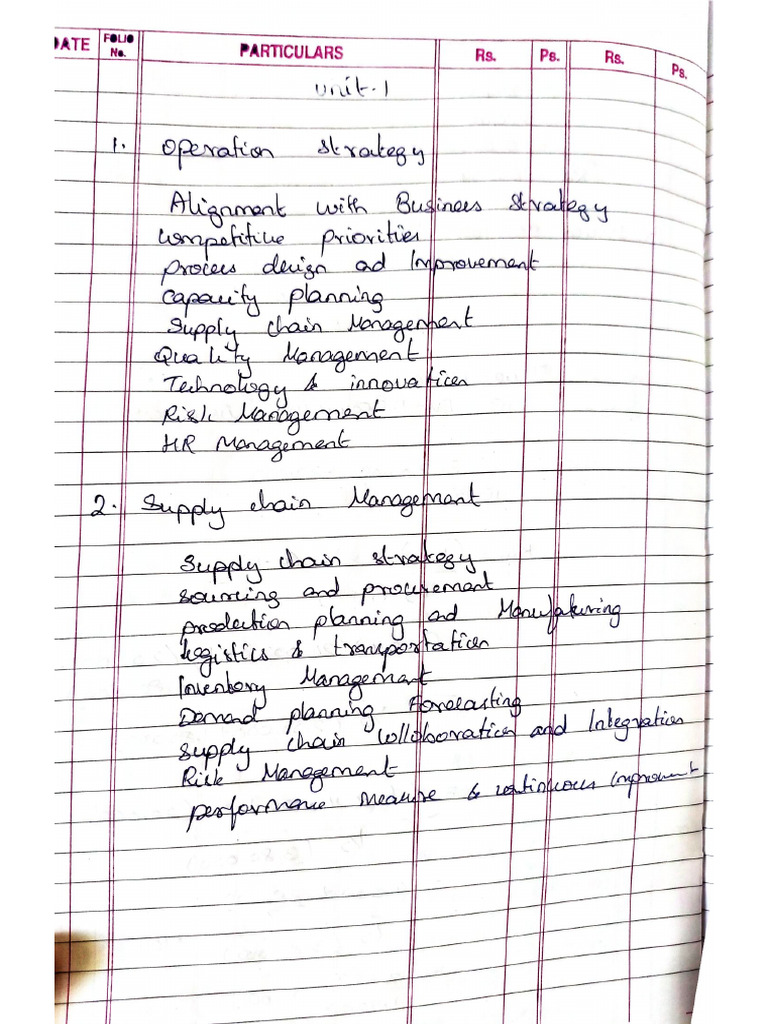 DATE FOLIO No. PARTICULARS Rs. Ps. Rs. Ps.
Unit-1
1. Operation strategy
Alignment with Business strategy
Competitive priorities
process design ad Improvement
Capacity planning
Supply chain Management
Quality Management
Technology & innovation
Risk Management
HR Management
2. Supply chain Management
Supply chain strategy
Sourcing and procurement
production planning and Manufaturing
Logistics & transportation
Inventory Management
Demand planning Forecasting
Supply chain Colloboration and Integration
Risk Management
performance measure & continuous Improvment